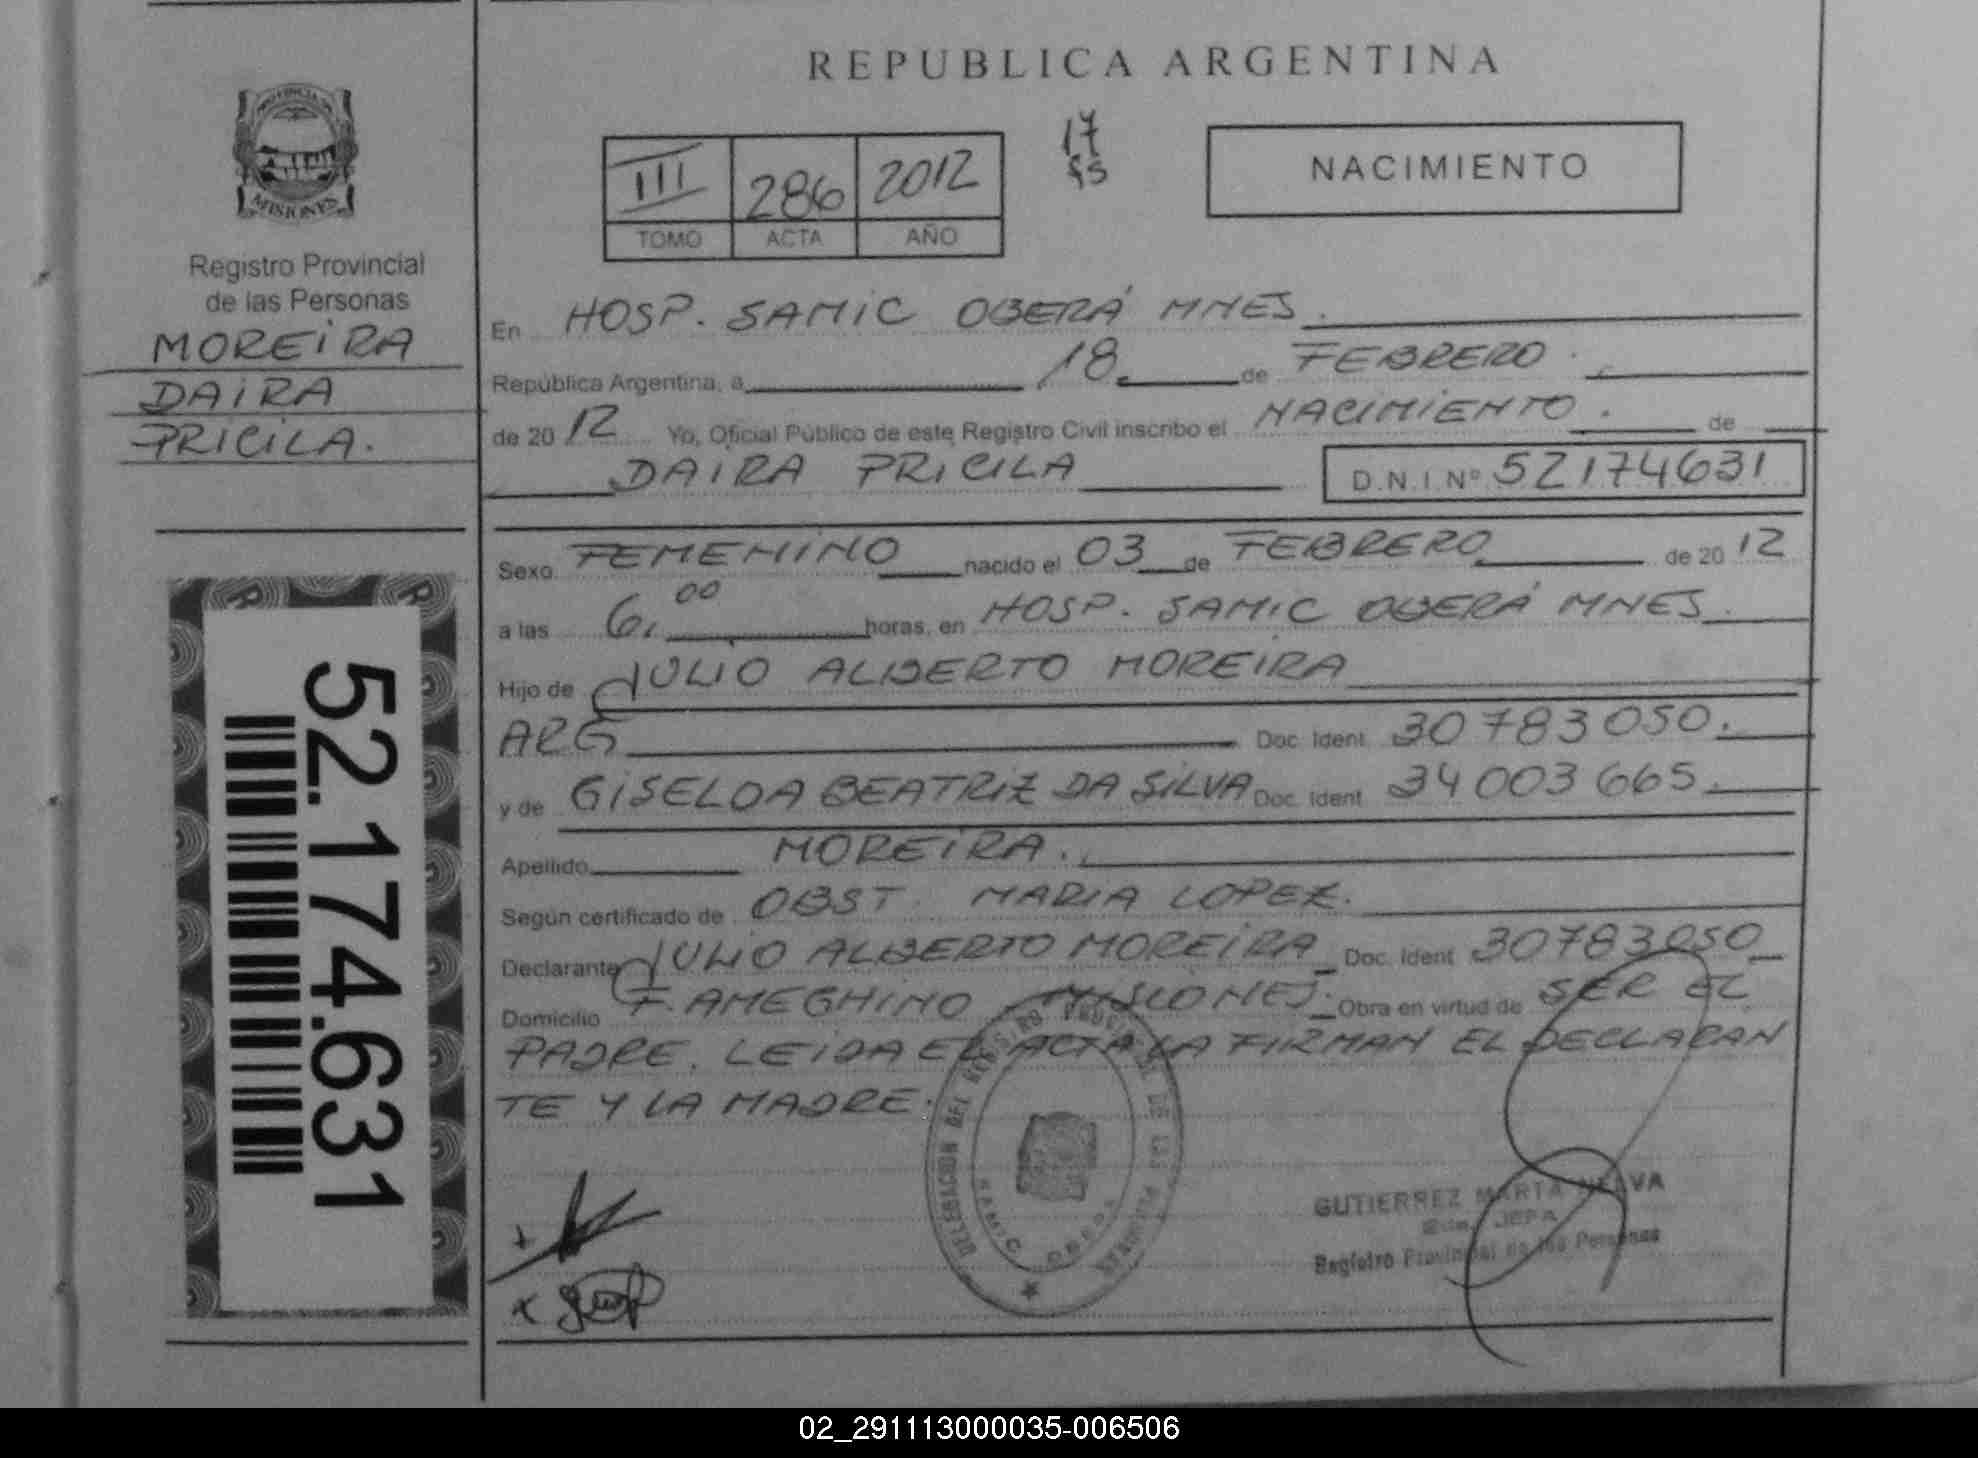 REPUBLICA ARGENTINA
MISIONES
Registro Provincial
de las Personas
MOREIRA
DAIRA
PRICILA.
52.174.631
III 286 2012
TOMO ACTA AÑO
17
NACIMIENTO
En HOSP. SAMIC OBERÁ MNES.
República Argentina, a 18 de FEBRERO
de 2012 Yo, Oficial Público de este Registro Civil inscribo el NACIMIENTO. de
DAIRA PRICILA D.N.I. Nº 52174631
Sexo FEMENINO nacido el 03 de FEBRERO de 2012
a las 6,00 horas, en HOSP. SAMIC OBERÁ MNES.
Hijo de JULIO ALBERTO MOREIRA
ARG Doc. Ident. 30783050.
y de GISELDA BEATRIZ DA SILVA Doc. Ident. 34003665.
Apellido MOREIRA.
Según certificado de OBST. MARIA LOPEZ.
Declarante JULIO ALBERTO MOREIRA Doc. Ident. 30783050
Domicilio F. AMEGHINO MISIONES. Obra en virtud de SER EL
PADRE. LEIDA EL ACTA LA FIRMAN EL DECLARAN
TE Y LA MADRE.
DELEGACION DEL REGISTRO PROVINCIAL DE LAS PERSONAS
SAMIC OBERA
GUTIERREZ MARTA
JEFA
Registro Provincial de las Personas
02_291113000035-006506